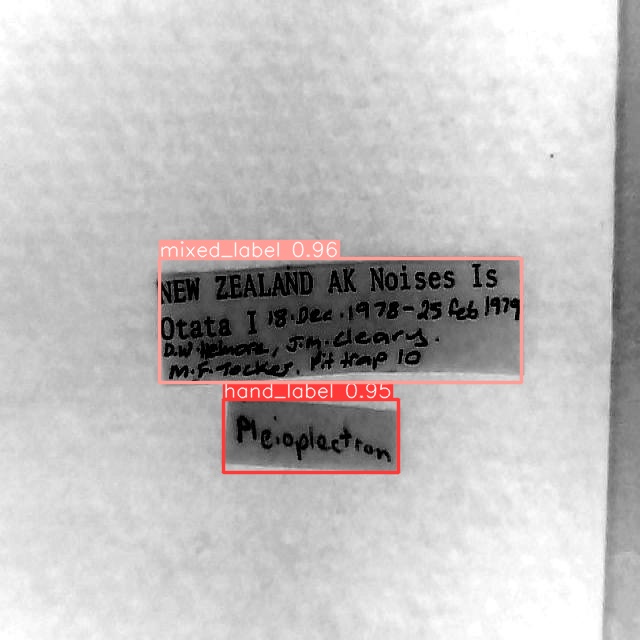 mixed_label 0.96
NEW ZEALAND AK Noises Is
Otata I 18.Dec.1978-25 Feb 1979
D.W. Helmore, J.M. Cleary.
M.F. Tocker, Pit trap 10
hand_label 0.95
Pleioplectron